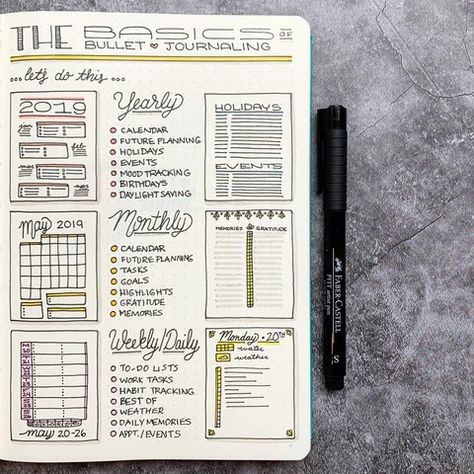 THE BASICS OF
BULLET ♥ JOURNALING
...let's do this...
2019
feb
apr
Yearly
CALENDAR
FUTURE PLANNING
HOLIDAYS
EVENTS
MOOD TRACKING
BIRTHDAYS
DAYLIGHT SAVING
HOLIDAYS
EVENTS
May 2019
Monthly
CALENDAR
FUTURE PLANNING
TASKS
GOALS
HIGHLIGHTS
GRATITUDE
MEMORIES
MEMORIES
GRATITUDE
may 20-26
Weekly/Daily
TO-DO LISTS
WORK TASKS
HABIT TRACKING
BEST OF
WEATHER
DAILY MEMORIES
APPT./EVENTS
Monday • 20th
water
weather
FABER-CASTELL
PITT artist pen
S